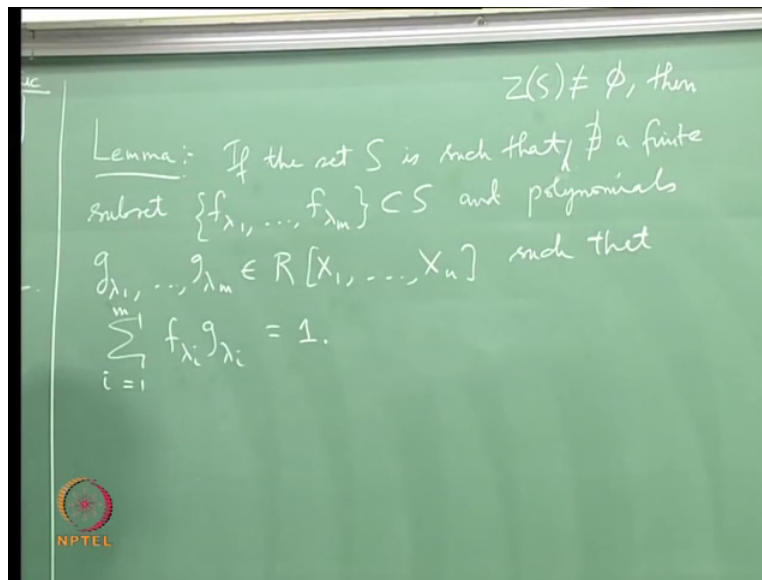 uc
Z(S) ≠ ϕ, then
Lemma:- If the set S is such that, ∄ a finite
subset {f_{λ_1}, ..., f_{λ_m}} ⊂ S and polynomials
g_{λ_1}, ..., g_{λ_m} ∈ R[X_1, ..., X_n] such that
∑_{i=1}^{m} f_{λ_i} g_{λ_i} = 1.
NPTEL